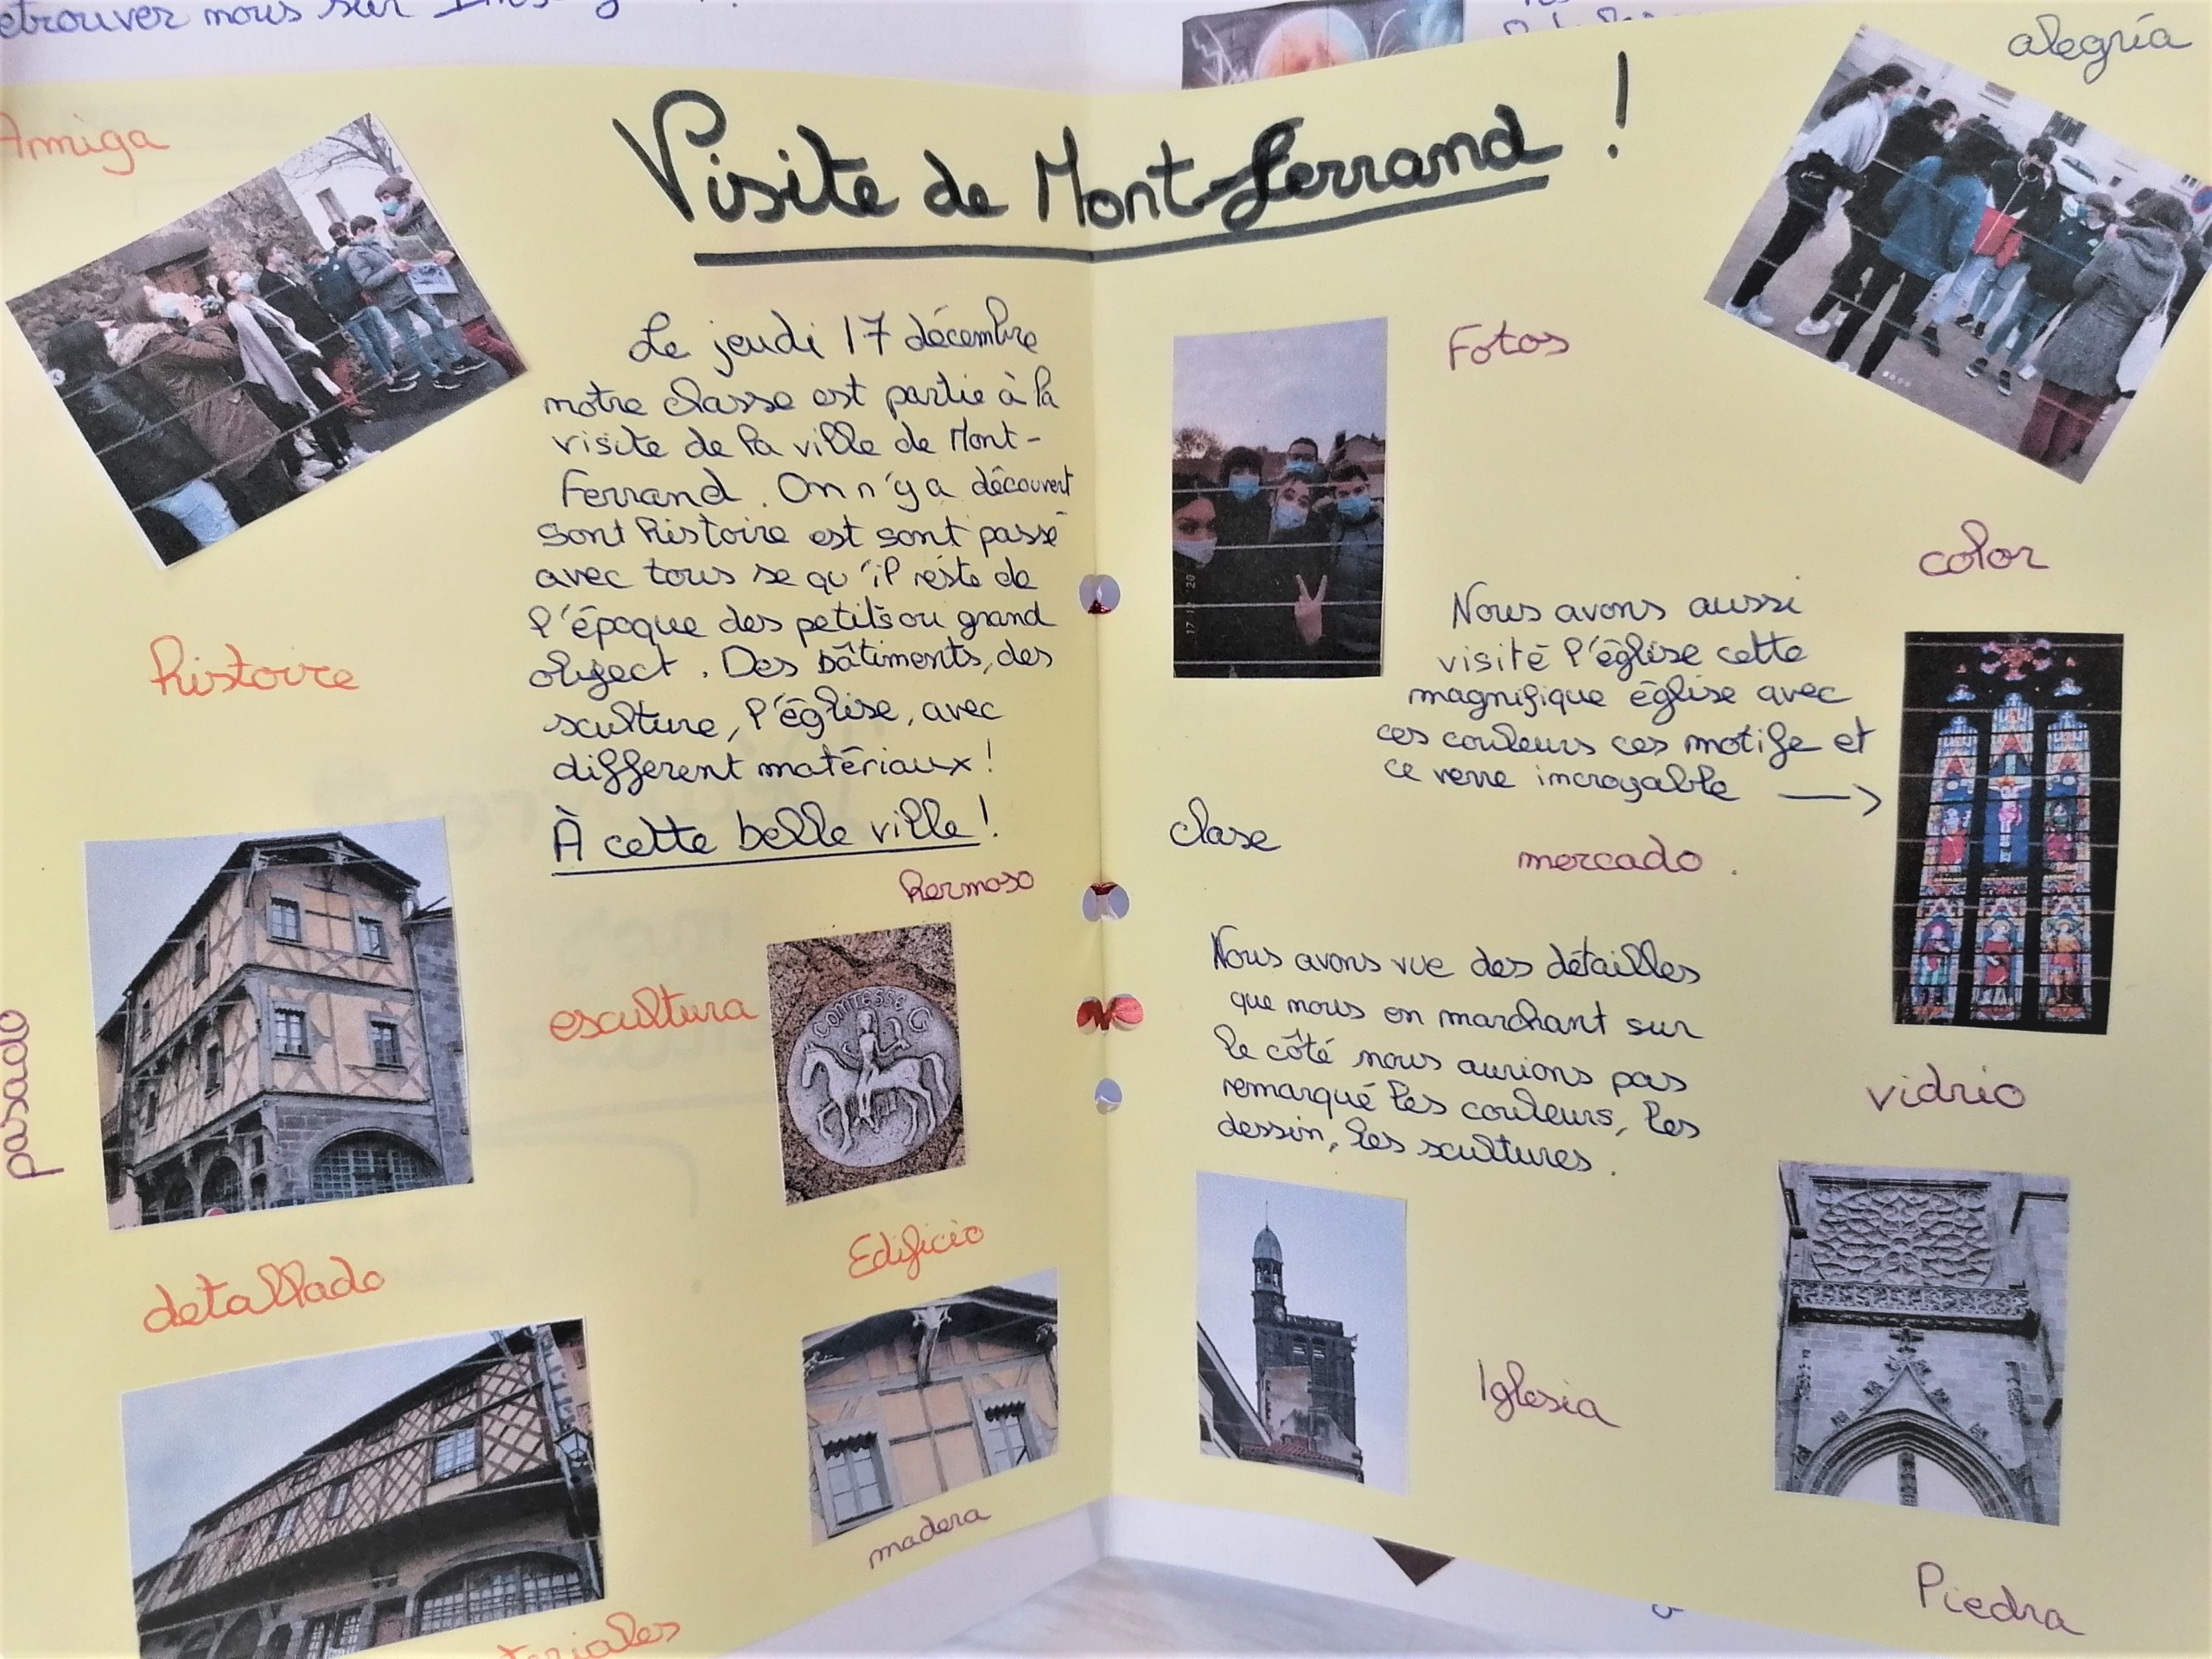 etrouver nous sur
alegría
Amiga
Visite de Mont-Ferrand !
Le jeudi 17 décembre
notre classe est partie à la
visite de la ville de Mont-
Ferrand. On n'y a découvert
sont histoire est sont passé
avec tous se qu'il réste de
l'époque des petits ou grand
object. Des bâtiments, des
sculture, l'église, avec
different matériaux !
À cette belle ville !
histoire
pasado
hermoso
escultura
COMTESSE G
detallado
Edificio
madera
teriales
Fotos
17 12 20
color
Nous avons aussi
visité l'église cette
magnifique église avec
ces couleurs ces motife et
ce verre incroyable →
clase
mercado.
Nous avons vue des détailles
que nous en marchant sur
le côté nous aurions pas
remarqué les couleurs, les
dessin, les scultures.
vidrio
Iglesia
Piedra